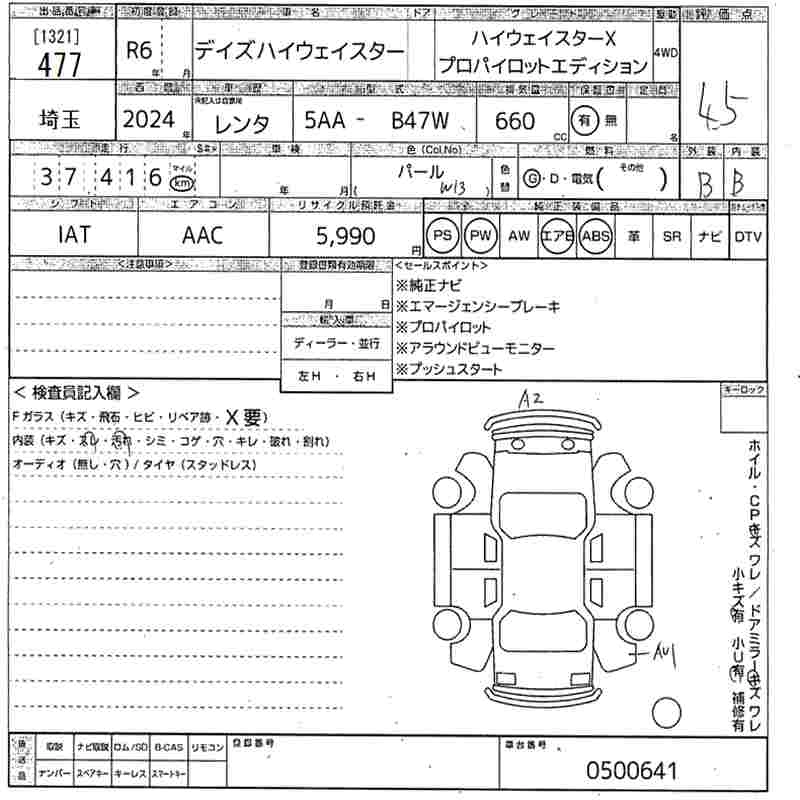 出品番号 初度登録 車名 ドア グレード 駆動 評価点
[1321]
477
R6 年 月
デイズハイウェイスター
ハイウェイスターX
プロパイロットエディション
4WD
4.5
車歴 型式 排気量 保証書 定員
埼玉
2024 年
未記入は自家用
レンタ
5AA - B47W
660 CC
有 無
名
走行 車検 色(Col.No) 燃料 外装 内装
37416 マイル km
年 月
パール
( W13 )
色替
G・D・電気( その他 )
B B
シフト エアコン リサイクル預託金 純正装備品
IAT AAC 5,990 円
PS PW AW エアB ABS 革 SR ナビ DTV
<注意事項>
登録書類有効期限
月 日
輸入車
ディーラー・並行
左H ・ 右H
<セールスポイント>
※純正ナビ
※エマージェンシーブレーキ
※プロパイロット
※アラウンドビューモニター
※プッシュスタート
< 検査員記入欄 >
Fガラス(キズ・飛石・ヒビ・リペア跡・X要)
内装(キズ・汚れ・シミ・コゲ・穴・キレ・破れ・割れ)
オーディオ(無し・穴)/タイヤ(スタッドレス)
A2
AU1
キーロック
ホイル・CPキズワレ/ドアミラーキズワレ
小キズ有 小U有 補修有
取説 ナビ取説 ロム/SD B-CAS リモコン
ナンバー スペアキー キーレス スマートキー
登録番号
車台番号
0500641